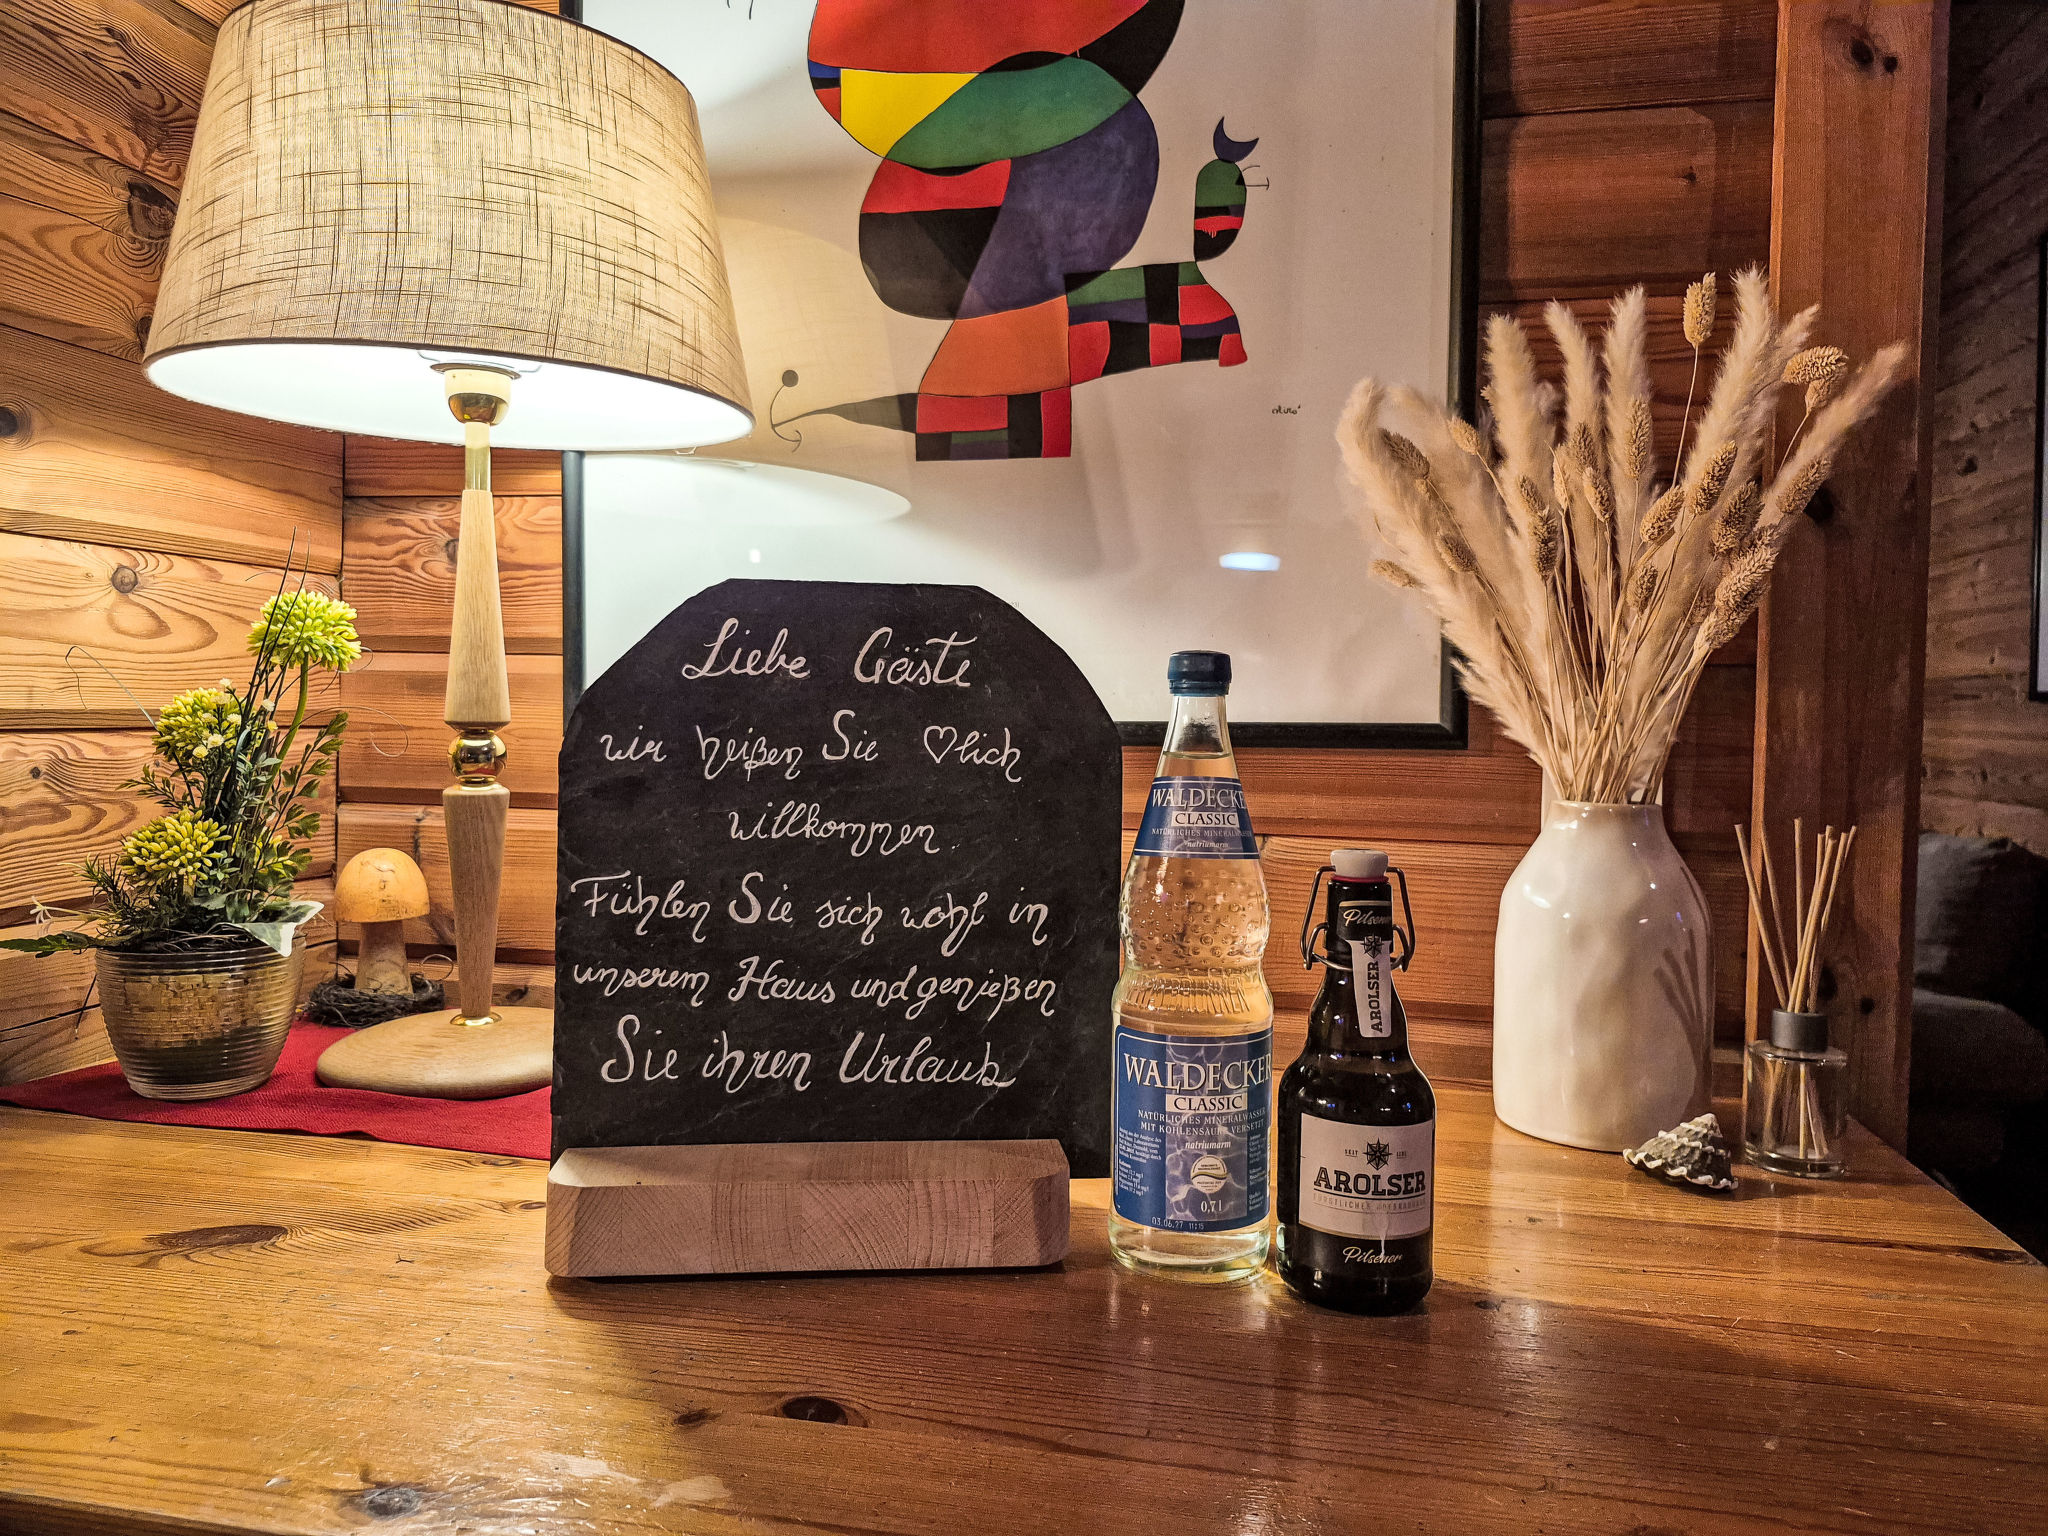 Liebe Gäste
wir heißen Sie ♡lich
willkommen.
Fühlen Sie sich wohl in
unserem Haus und genießen
Sie ihren Urlaub
WALDECKER
CLASSIC
NATÜRLICHES MINERALWASSER
natriumarm
WALDECKER
CLASSIC
NATÜRLICHES MINERALWASSER
MIT KOHLENSÄURE VERSETZT
natriumarm
0,7 l
03.06.27 11:15
Pilsener
AROLSER
SEIT
AROLSER
FÜRSTLICHES HOFBRAUHAUS
Pilsener